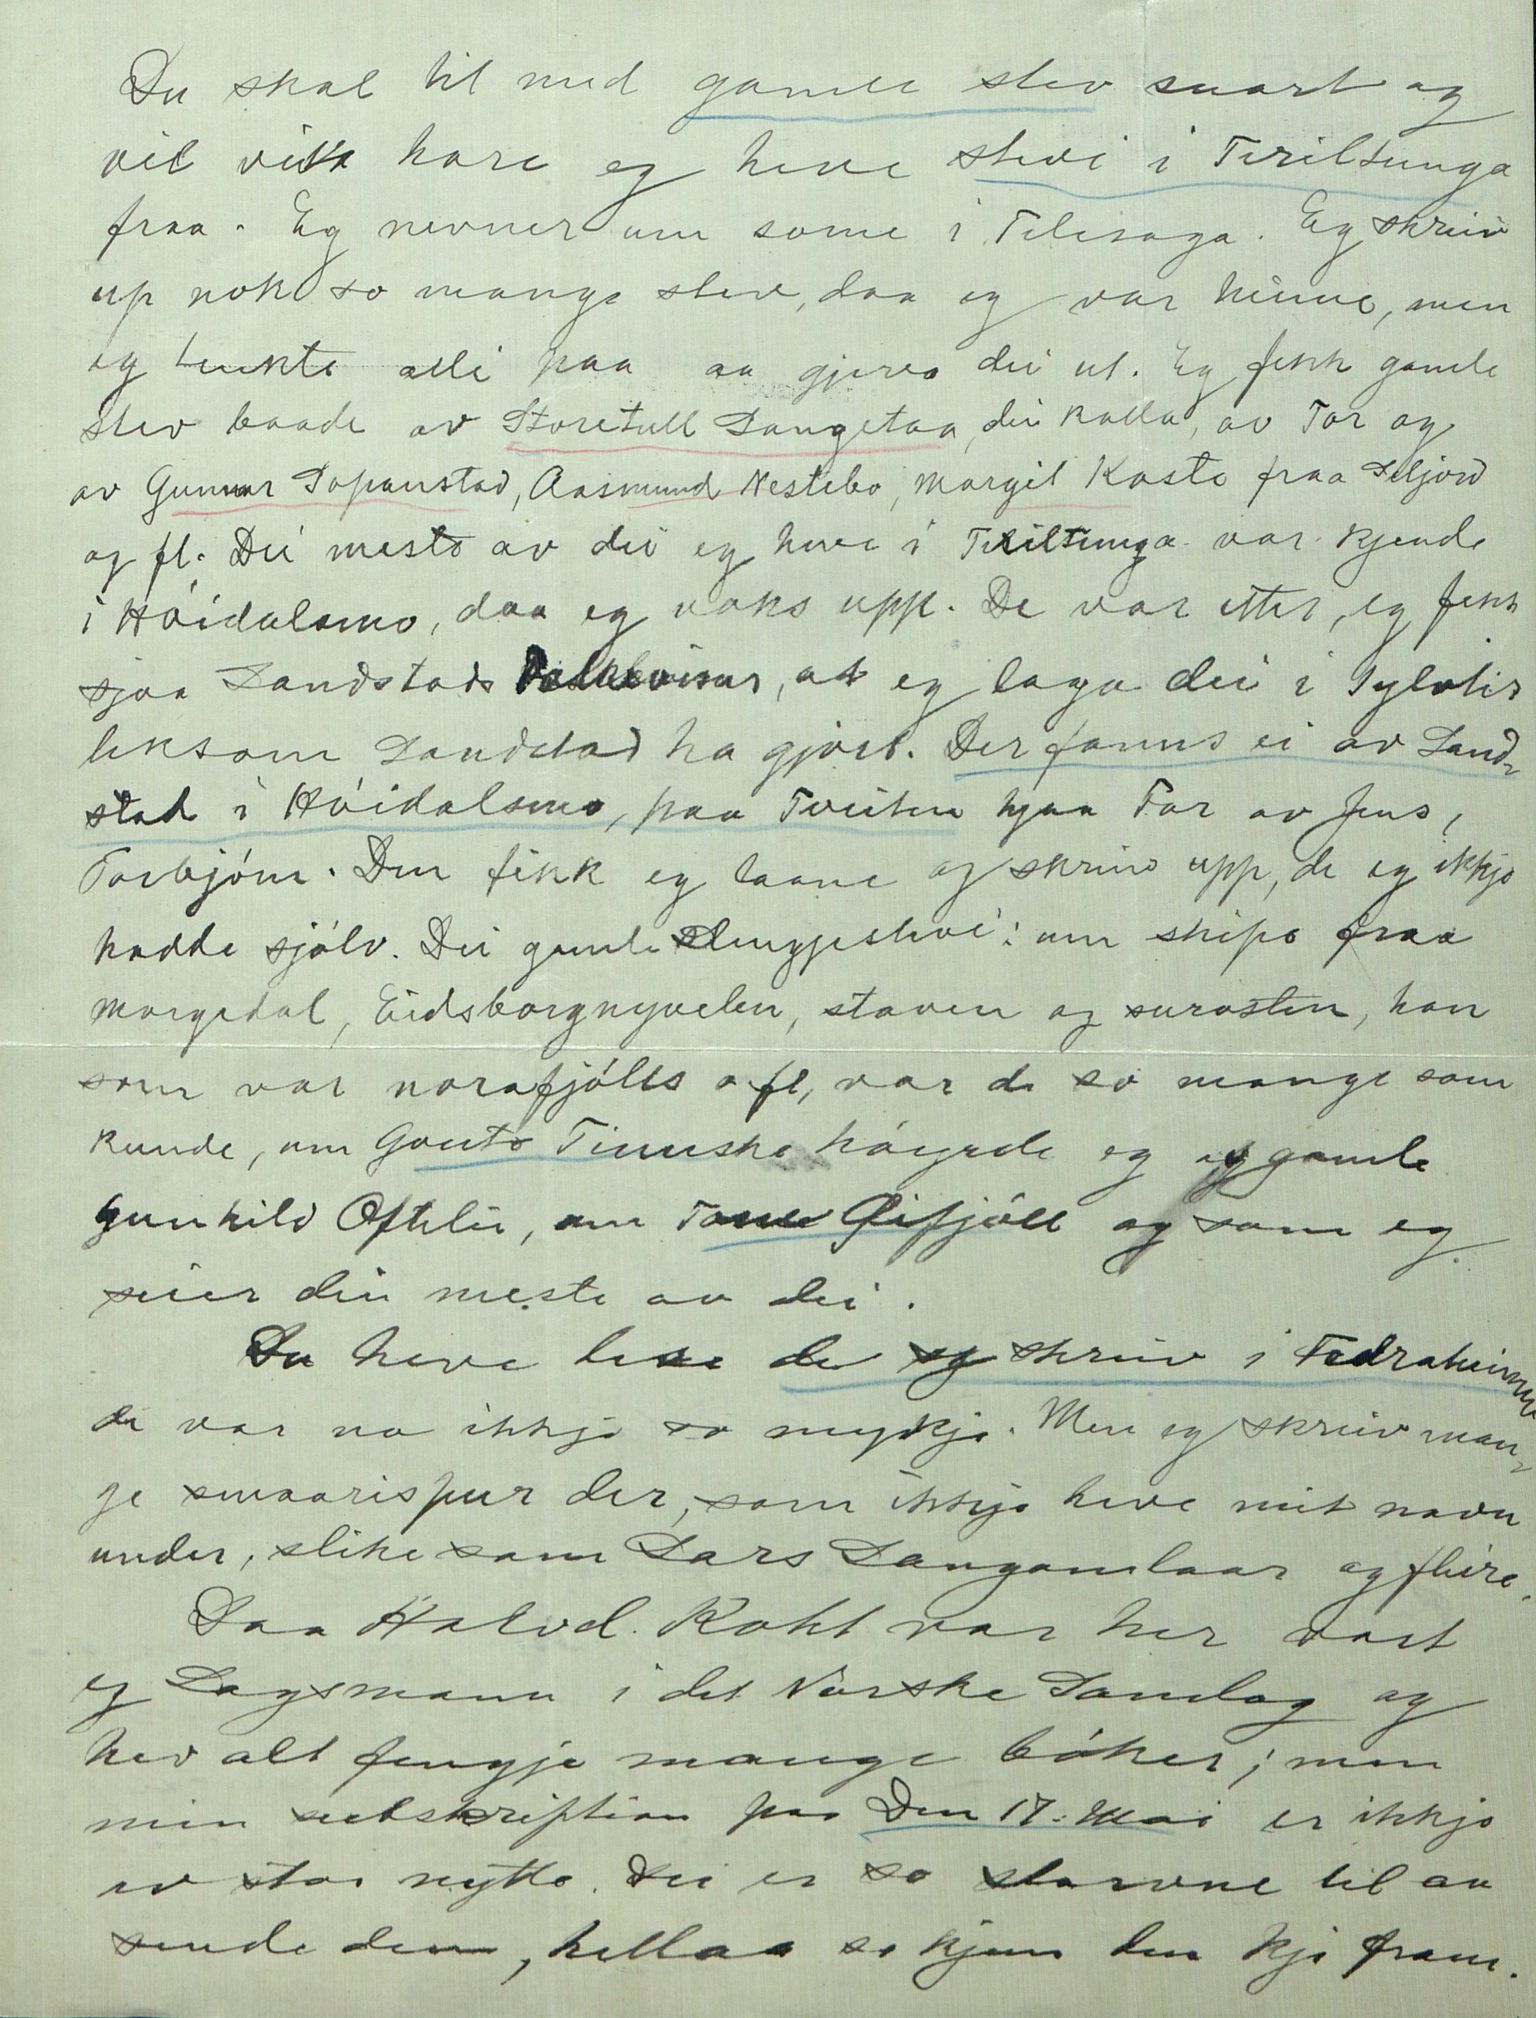 Du skal til med gamle stev snart og
vil vita hore eg heve stevi i Tiriltunga
fraa. Eg nevner um some i Telesoga. Eg skreiv
up nok so mange stev, daa eg var heime, men
eg tenkte alli paa aa gjeva dei ut. Eg fekk gamle
stev baade av Storetull Langetaa, dei kalla, av Tor og
av Gunnar Lopanstad, Aasmund Nestebø, Margit Kaste fraa Seljord
og fl. Dei meste av dei eg heve i Tiriltunga var kjende
i Hóidalsmo, daa eg voks upp. De var etter, eg fekk
sjaa Landstads Folkevisur, at eg laga dei i Tylvtir
liksom Landstad ha gjort. Der fanns ei av Land-
stad i Hóidalsmo, paa Tveiten hjaa Far av Jens,
Torbjórn. Den fekk eg laane og skreiv upp, de eg ikkje
hadde sjólv. Dei gamle slengjestevi: um skipo fraa
Morgedal, Eidsborgnyvelen, staven og surosten, han
som var norafjólls o fl, var de so mange som
kunde, um Gouto Tinnske hóyrde eg og gamle
Gunhild Oftelie, um Tone Øifjóll og som eg
seier dei meste av dei.
Du heve lese de eg skreiv i Fedraheimen
de var no ikkje so mykje. Men eg skreiv man-
ge smaarispur der, som ikkje heve mit navn
under, slike som Lars Langomlaar og fleire.
Daa Halvd. Koht var her vart
eg Lagsmann i det Norske Samlag og
hev alt fengje mange bóker; men
min subskription paa Den 17: Mai er ikkje
av stor nytto. Dei er so slarvne til aa
sende den, hellaa so kjem den kje fram.